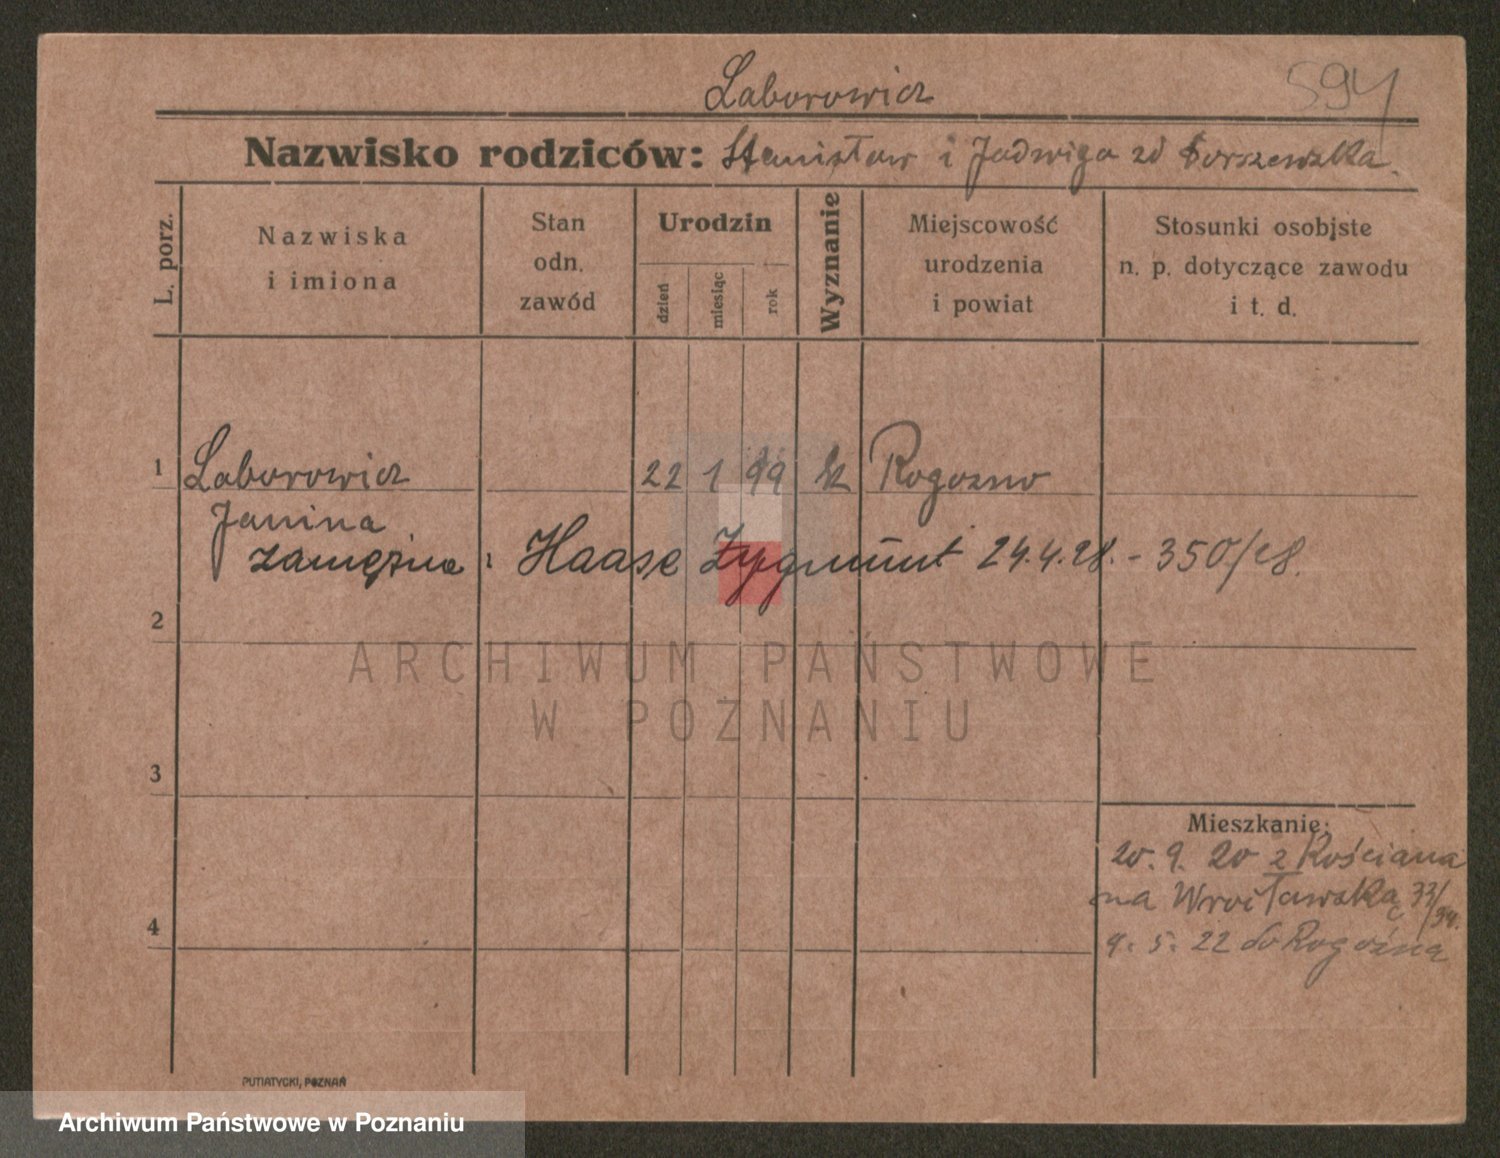 Laborowicz
594
Nazwisko rodziców: Stanisław i Jadwiga zd
L. porz.
Nazwiska
i imiona
Stan
odn.
zawód
Urodzin
dzień
miesiąc
rok
Wyznanie
Miejscowość
urodzenia
i powiat
Stosunki osobiste
n. p. dotyczące zawodu
i t. d.
1 Laborowicz 22 1 99 k Rogozno
Janina
zamężna: Haase Zygmunt 24.4.28. - 350/28.
2
ARCHIWUM PAŃSTWOWE
W POZNANIU
3
Mieszkanie:
20. 9. 20 z Kościana
na Wrocławską 33/34.
4
9. 5. 22 do Rogoźna
PUTIATYCKI, POZNAŃ
Archiwum Państwowe w Poznaniu